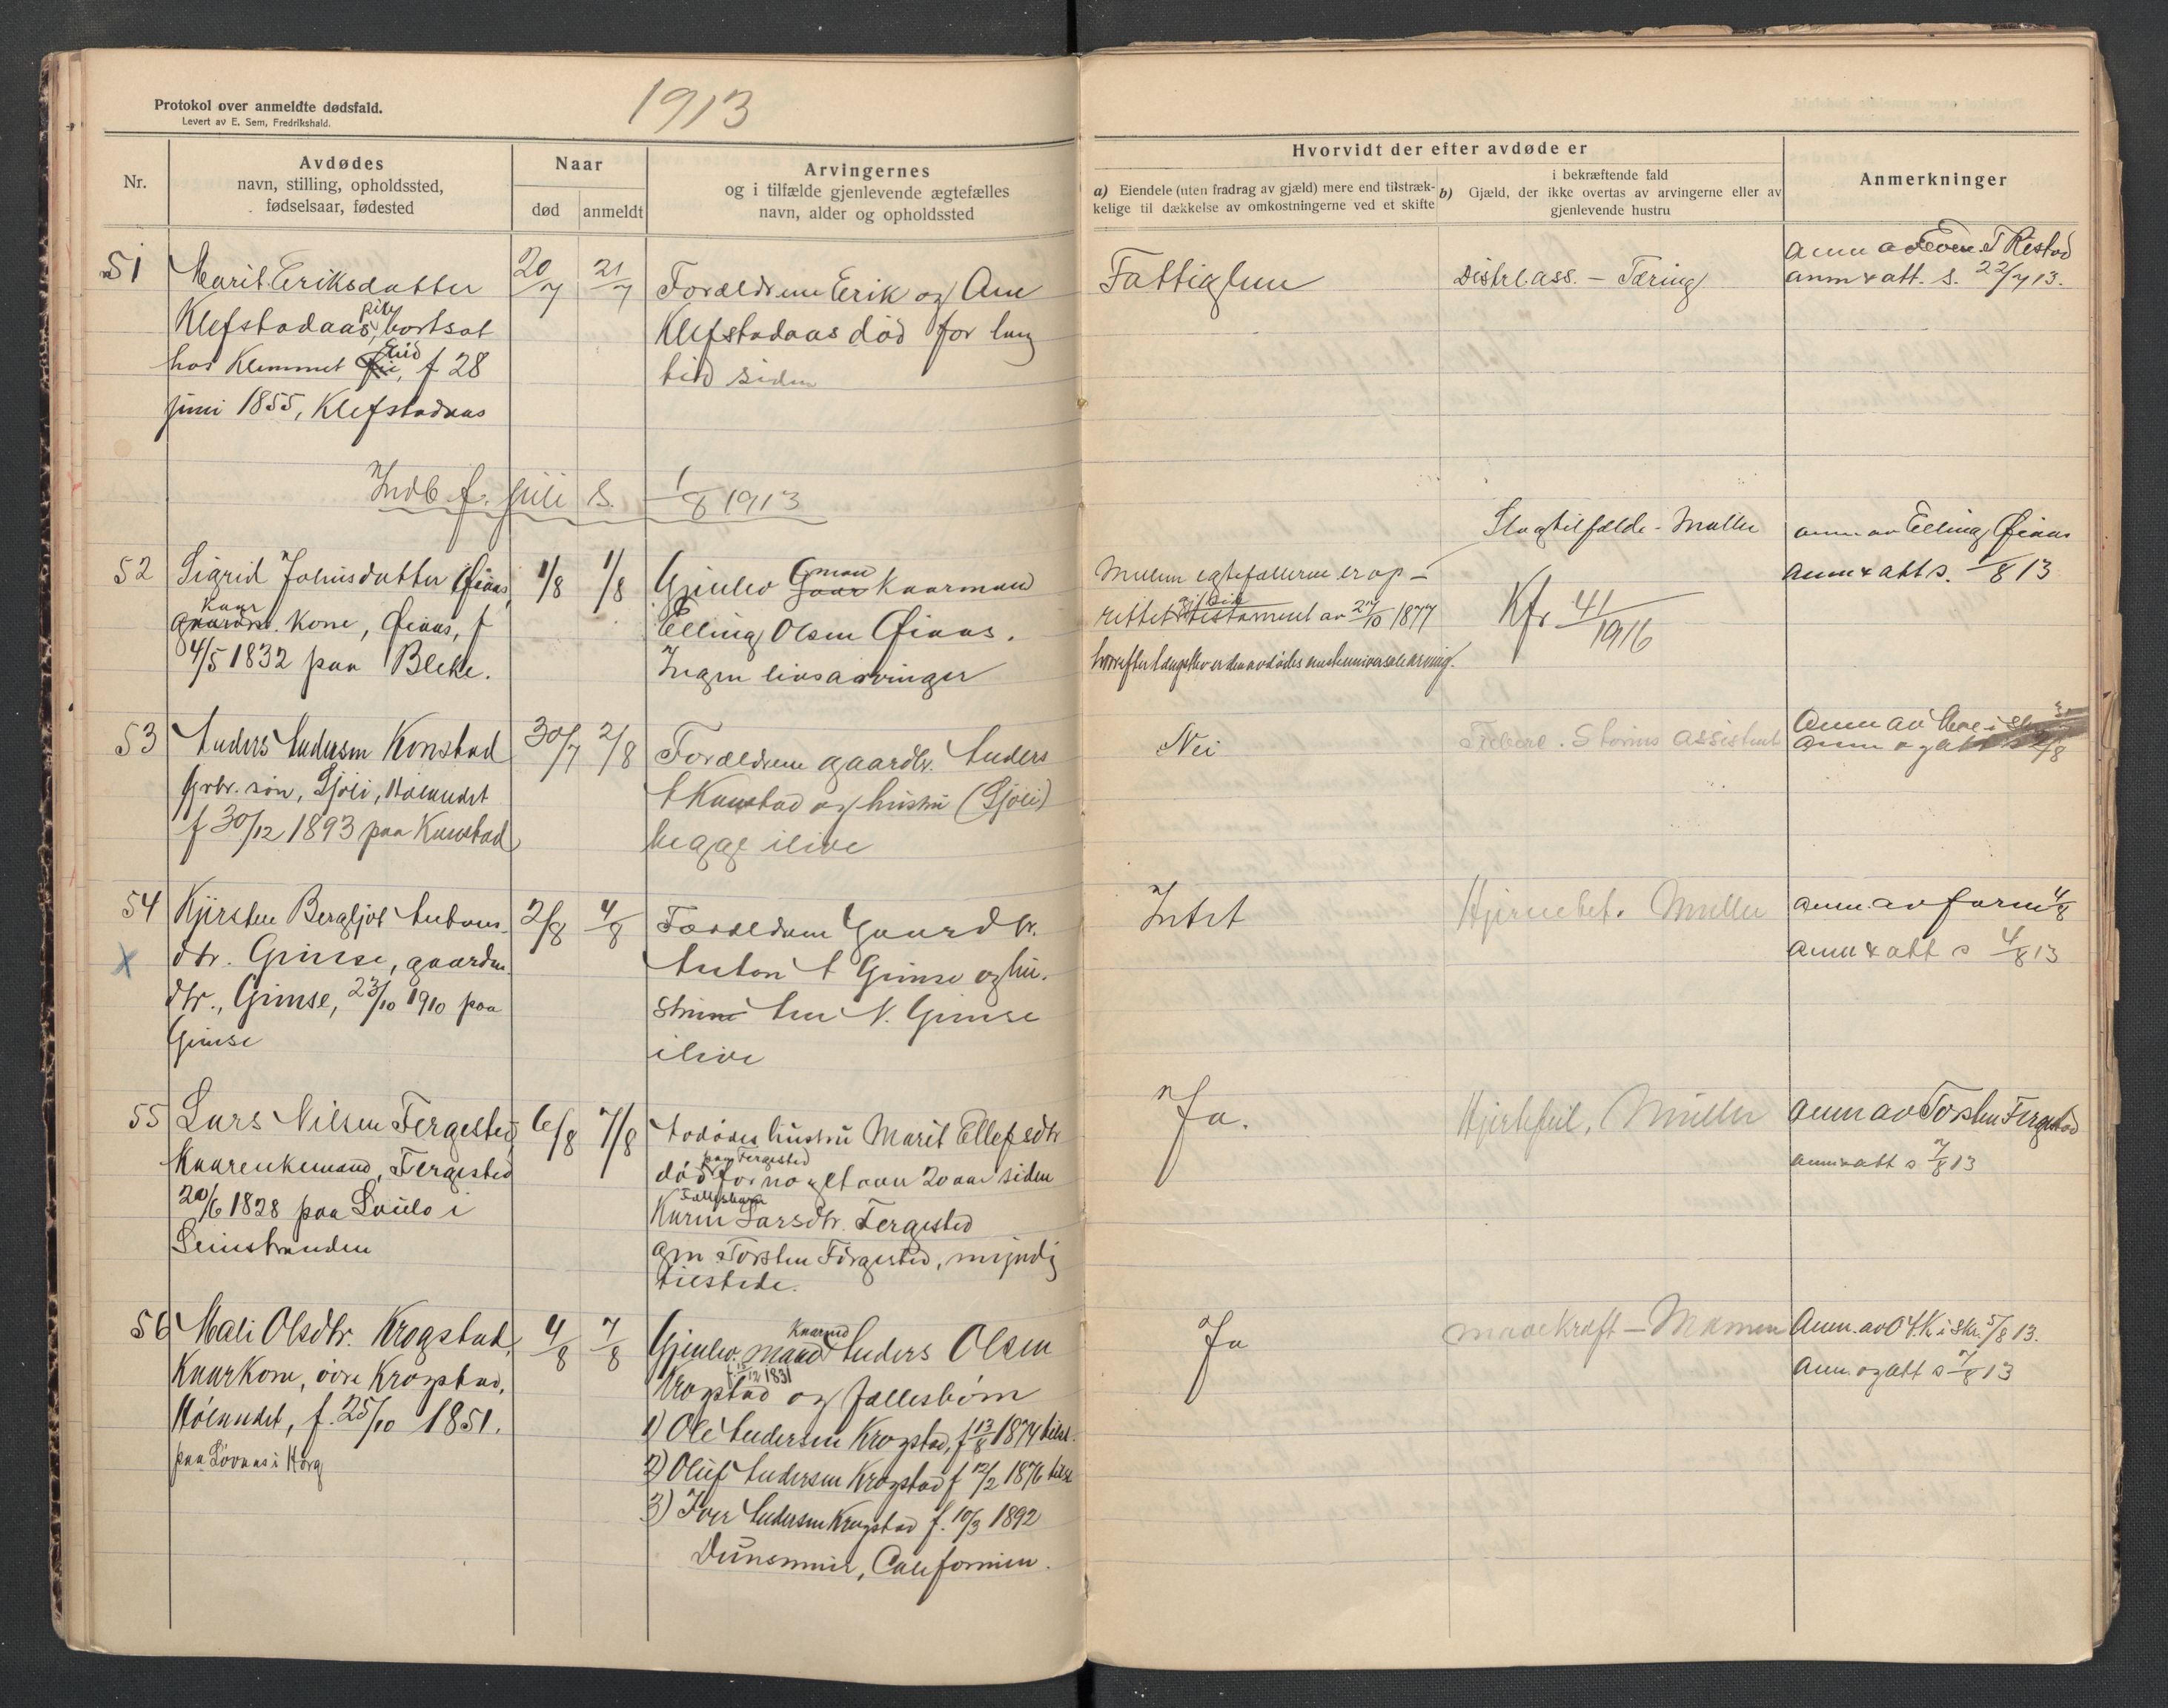 Protokol over anmeldte dødsfald.
Levert av E. Sem, Fredrikshald.
1913
Nr.
Avdødes
navn, stilling, opholdssted,
fødselsaar, fødested
Naar
død
anmeldt
Arvingernes
og i tilfælde gjenlevende ægtefælles
navn, alder og opholdssted
Hvorvidt der efter avdøde er
a) Eiendele (uten fradrag av gjæld) mere end tilstræk-
kelige til dækkelse av omkostningerne ved et skifte
i bekræftende fald
b) Gjæld, der ikke overtas av arvingerne eller av
gjenlevende hustru
Anmerkninger
51
Marit Eriksdatter
Klefstadaas, pike, bortsat
hos Klemmet Eid, f 28
juni 1855, Klefstadaas
20/7
21/7
Forældrene Erik og Ane
Klefstadaas død for lang
tid siden
Fattiglem
Distrl. ass. - Tæring
anm & att. s. 22/7 13.
Indb f. juli s. 1/8 1913
52
Sigrid Johnsdatter Øiaas,
kaar
gaardm. kone, Øiaas, f
4/5 1832 paa Bleke.
1/8
1/8
Gjenlev Gman kaarmand
Elling Olsen Øiaas.
Ingen livsarvinger
Mellem egtefællerne er op-
rettet gjensid testament av 27/10 1877
hvorefter længstlev er den avdødes eneste universalarving.
Slagtilfælde - Müller
Kfr 41/1916
anm av Elling Øiaas
anm & att s. 1/8 13
53
Anders Andersen Konstad
Grbr. søn, Sjøli, Hølandet
f 30/12 1893 paa Kunstad
30/7
2/8
Forældrene gaardbr. Anders
A Kunstad og hustru (Sjøli)
begge ilive
Nei
Tuberc. Storms assistent
54
Kjirsten Bergljot Antons-
dtr. Gimse, gaardm.
dtr., Gimse, 23/10 1910 paa
Gimse
2/8
4/8
Forældrene Gaardbr.
Anton A Gimse og hu-
strune Ane N. Gimse
ilive
Intet
Hjernebet. Müller
anm. av faren 4/8
anm & att s 4/8 13
55
Lars Nilsen Fergestad,
Kaarenkemand, Fergestad
20/6 1828 paa Saulo i
Leinstranden
6/8
7/8
Avdødes hustru Marit Ellefsdtr
paa Fergestad
død for noget over 20 aar siden
Fællesbarn
Karen Larsdtr. Fergestad
gm Torsten Fergestad, myndig
tilstede.
Ja.
Hjertefeil, Müller
anm av Torsten Fergestad
anm & att s 7/8 13
56
Mali Olsdtr. Krogstad,
Kaarkone, øvre Krogstad,
Hølandet, f. 25/10 1851.
paa Løvaas i Horg
4/8
7/8
Kaarmd
Gjenlev. mand Anders Olsen
f. 15/12 1831
Krogstad og fællesbørn
1) Ole Andersen Krogstad, f 13/8 1874 tilst.
2) Oluf Andersen Krogstad f 12/2 1876 tilst
3) Iver Andersen Krogstad f. 10/3 1892
Dunsmuir, Californien.
Ja
mavekræft - Mamen
Anm. av O A K i skr. 5/8 13.
Anm. og att s 7/8 13